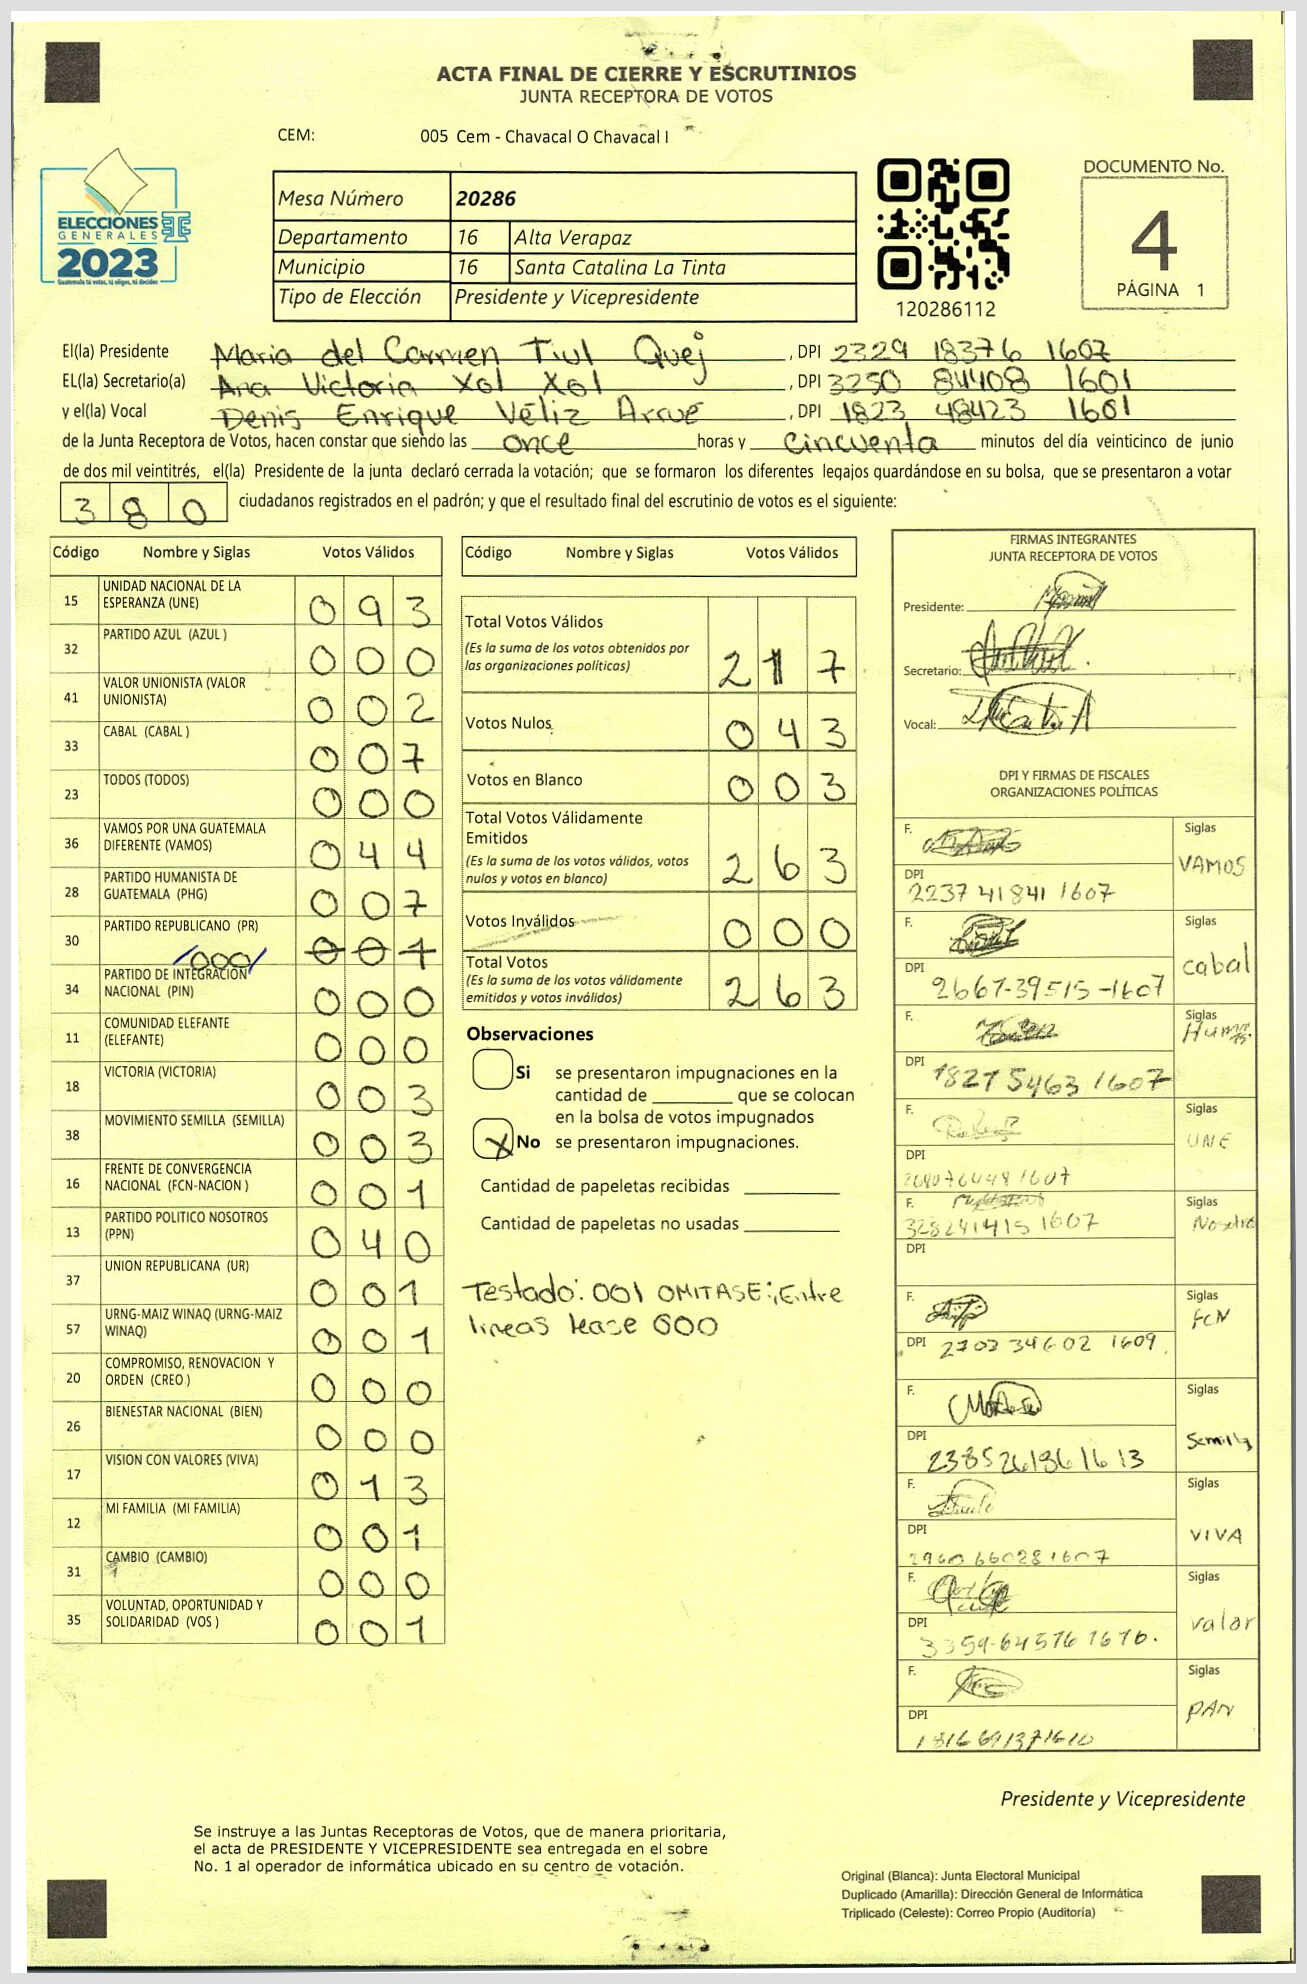 ACTA FINAL DE CIERRE Y ESCRUTINIOS
JUNTA RECEPTORA DE VOTOS
CEM: 005 Cem - Chavacal O Chavacal I
ELECCIONES
GENERALES
2023
Guatemala tú votas, tú eliges, tú decides
Mesa Número 20286
Departamento 16 Alta Verapaz
Municipio 16 Santa Catalina La Tinta
Tipo de Elección Presidente y Vicepresidente
120286112
DOCUMENTO No.
4
PÁGINA 1
El(la) Presidente Maria del Carmen Tiul Quej, DPI 2329 18376 1607
EL(la) Secretario(a) Ana Victoria Xol Xol, DPI 3250 84408 1601
y el(la) Vocal Denis Enrique Véliz Arcué, DPI 1823 48423 1601
de la Junta Receptora de Votos, hacen constar que siendo las once horas y cincuenta minutos del día veinticinco de junio
de dos mil veintitrés, el(la) Presidente de la junta declaró cerrada la votación; que se formaron los diferentes legajos guardándose en su bolsa, que se presentaron a votar
380 ciudadanos registrados en el padrón; y que el resultado final del escrutinio de votos es el siguiente:
Código Nombre y Siglas Votos Válidos
15 UNIDAD NACIONAL DE LA ESPERANZA (UNE) 093
32 PARTIDO AZUL (AZUL ) 000
41 VALOR UNIONISTA (VALOR UNIONISTA) 002
33 CABAL (CABAL ) 007
23 TODOS (TODOS) 000
36 VAMOS POR UNA GUATEMALA DIFERENTE (VAMOS) 044
28 PARTIDO HUMANISTA DE GUATEMALA (PHG) 007
30 PARTIDO REPUBLICANO (PR) /000/ 001
34 PARTIDO DE INTEGRACION NACIONAL (PIN) 000
11 COMUNIDAD ELEFANTE (ELEFANTE) 000
18 VICTORIA (VICTORIA) 003
38 MOVIMIENTO SEMILLA (SEMILLA) 003
16 FRENTE DE CONVERGENCIA NACIONAL (FCN-NACION ) 001
13 PARTIDO POLITICO NOSOTROS (PPN) 040
37 UNION REPUBLICANA (UR) 001
57 URNG-MAIZ WINAQ (URNG-MAIZ WINAQ) 001
20 COMPROMISO, RENOVACION Y ORDEN (CREO ) 000
26 BIENESTAR NACIONAL (BIEN) 000
17 VISION CON VALORES (VIVA) 013
12 MI FAMILIA (MI FAMILIA) 001
31 CAMBIO (CAMBIO) 000
35 VOLUNTAD, OPORTUNIDAD Y SOLIDARIDAD (VOS ) 001
Código Nombre y Siglas Votos Válidos
Total Votos Válidos 217
(Es la suma de los votos obtenidos por
las organizaciones políticas)
Votos Nulos 043
Votos en Blanco 003
Total Votos Válidamente
Emitidos 263
(Es la suma de los votos válidos, votos
nulos y votos en blanco)
Votos Inválidos 000
Total Votos 263
(Es la suma de los votos válidamente
emitidos y votos inválidos)
Observaciones
Si se presentaron impugnaciones en la
cantidad de ________ que se colocan
en la bolsa de votos impugnados
X No se presentaron impugnaciones.
Cantidad de papeletas recibidas
Cantidad de papeletas no usadas
Testado: 001 OMITASE:, Entre
lineas lease 000
FIRMAS INTEGRANTES
JUNTA RECEPTORA DE VOTOS
Presidente:
Secretario:
Vocal:
DPI Y FIRMAS DE FISCALES
ORGANIZACIONES POLÍTICAS
F. Siglas VAMOS
DPI 2237 41841 1607
F. Siglas cabal
DPI 2667-39515-1607
F. Siglas
DPI 1827 5463 1607
F. Siglas UNE
DPI
F. Siglas Nosotro
328241415 1607
DPI
F. Siglas FCN
DPI 2703 34602 1609
F. Siglas Semilla
DPI 2385261961613
F. Siglas VIVA
DPI 2960660281607
F. Siglas valor
DPI 3359-64576 1616.
F. Siglas PAN
DPI 1816691371610
Presidente y Vicepresidente
Se instruye a las Juntas Receptoras de Votos, que de manera prioritaria,
el acta de PRESIDENTE Y VICEPRESIDENTE sea entregada en el sobre
No. 1 al operador de informática ubicado en su centro de votación.
Original (Blanca): Junta Electoral Municipal
Duplicado (Amarilla): Dirección General de Informática
Triplicado (Celeste): Correo Propio (Auditoría)